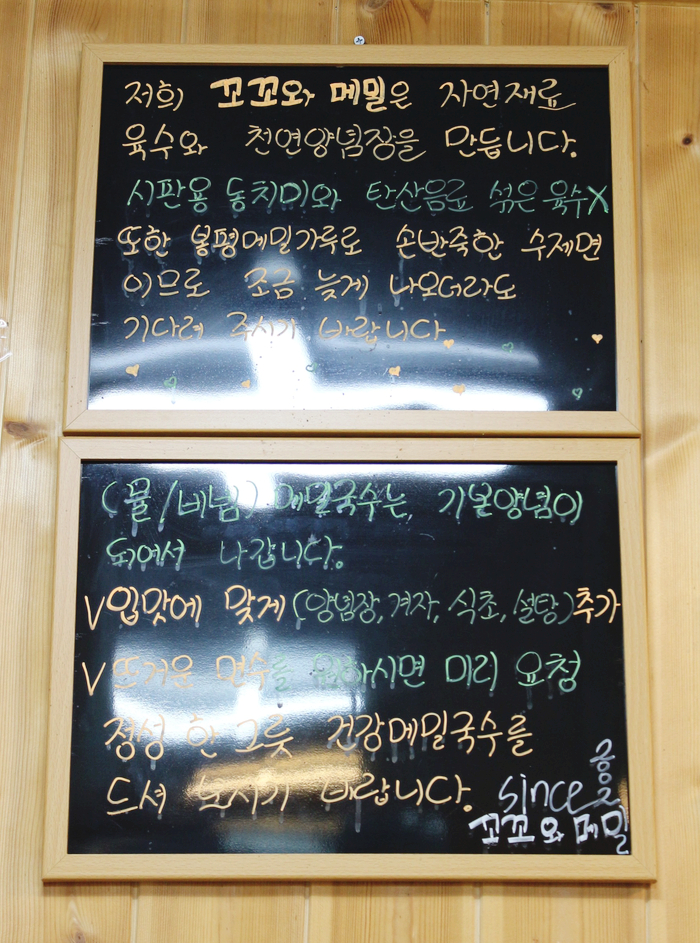 저희 꼬꼬와 메밀은 자연재료
육수와 천연양념장을 만듭니다.
시판용 동치미와 탄산음료 섞은 육수X
또한 봉평메밀가루로 손반죽한 수제면
이므로 조금 늦게 나오더라도
기다려 주시기 바랍니다
(물/비빔) 메밀국수는, 기본양념이
되어서 나갑니다.
V입맛에 맞게(양념장, 겨자, 식초, 설탕)추가
V뜨거운 면수를 원하시면 미리 요청
정성 한 그릇 건강메밀국수를
드셔 보시기 바랍니다. since
꼬꼬와메밀